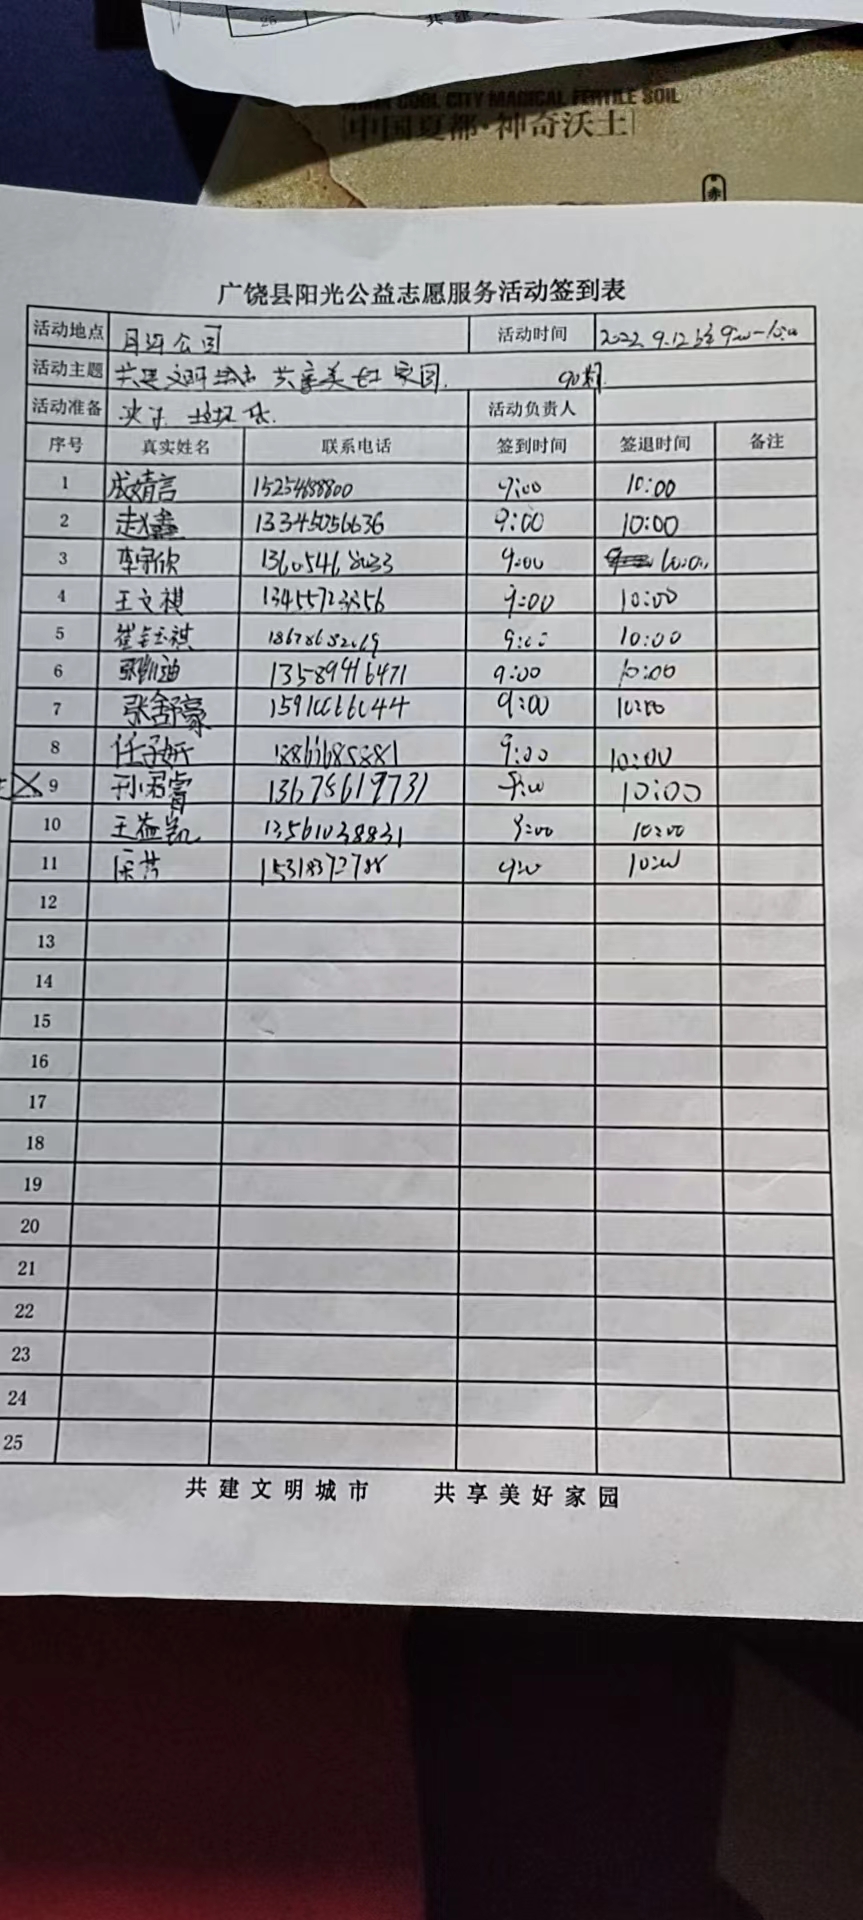 共建
COOL CITY MAGICAL FERTILE SOIL
[中国夏都·神奇沃土]
赤
广饶县阳光公益志愿服务活动签到表
活动地点 月河公园 活动时间 2022.9.12 9:00-10:00
活动主题 共建文明城市 共享美好家园.
活动准备 垃圾袋 活动负责人
序号 真实姓名 联系电话 签到时间 签退时间 备注
1 成婧言 15254688800 9:00 10:00
2 赵鑫 13345056636 9:00 10:00
3 李守欣 13605468033 9:00 10:00
4 王文祺 9:00 10:00
5 崔钰祺 9:00 10:00
6 张凯迪 13589916471 9:00 10:00
7 张舒豪 15910666044 9:00 10:00
8 任子妍 9:00 10:00
9 孙君睿 13675619731 9:00 10:00
10 王益凯 13561038831 9:00 10:00
11 9:00 10:00
12
13
14
15
16
17
18
19
20
21
22
23
24
25
共建文明城市 共享美好家园